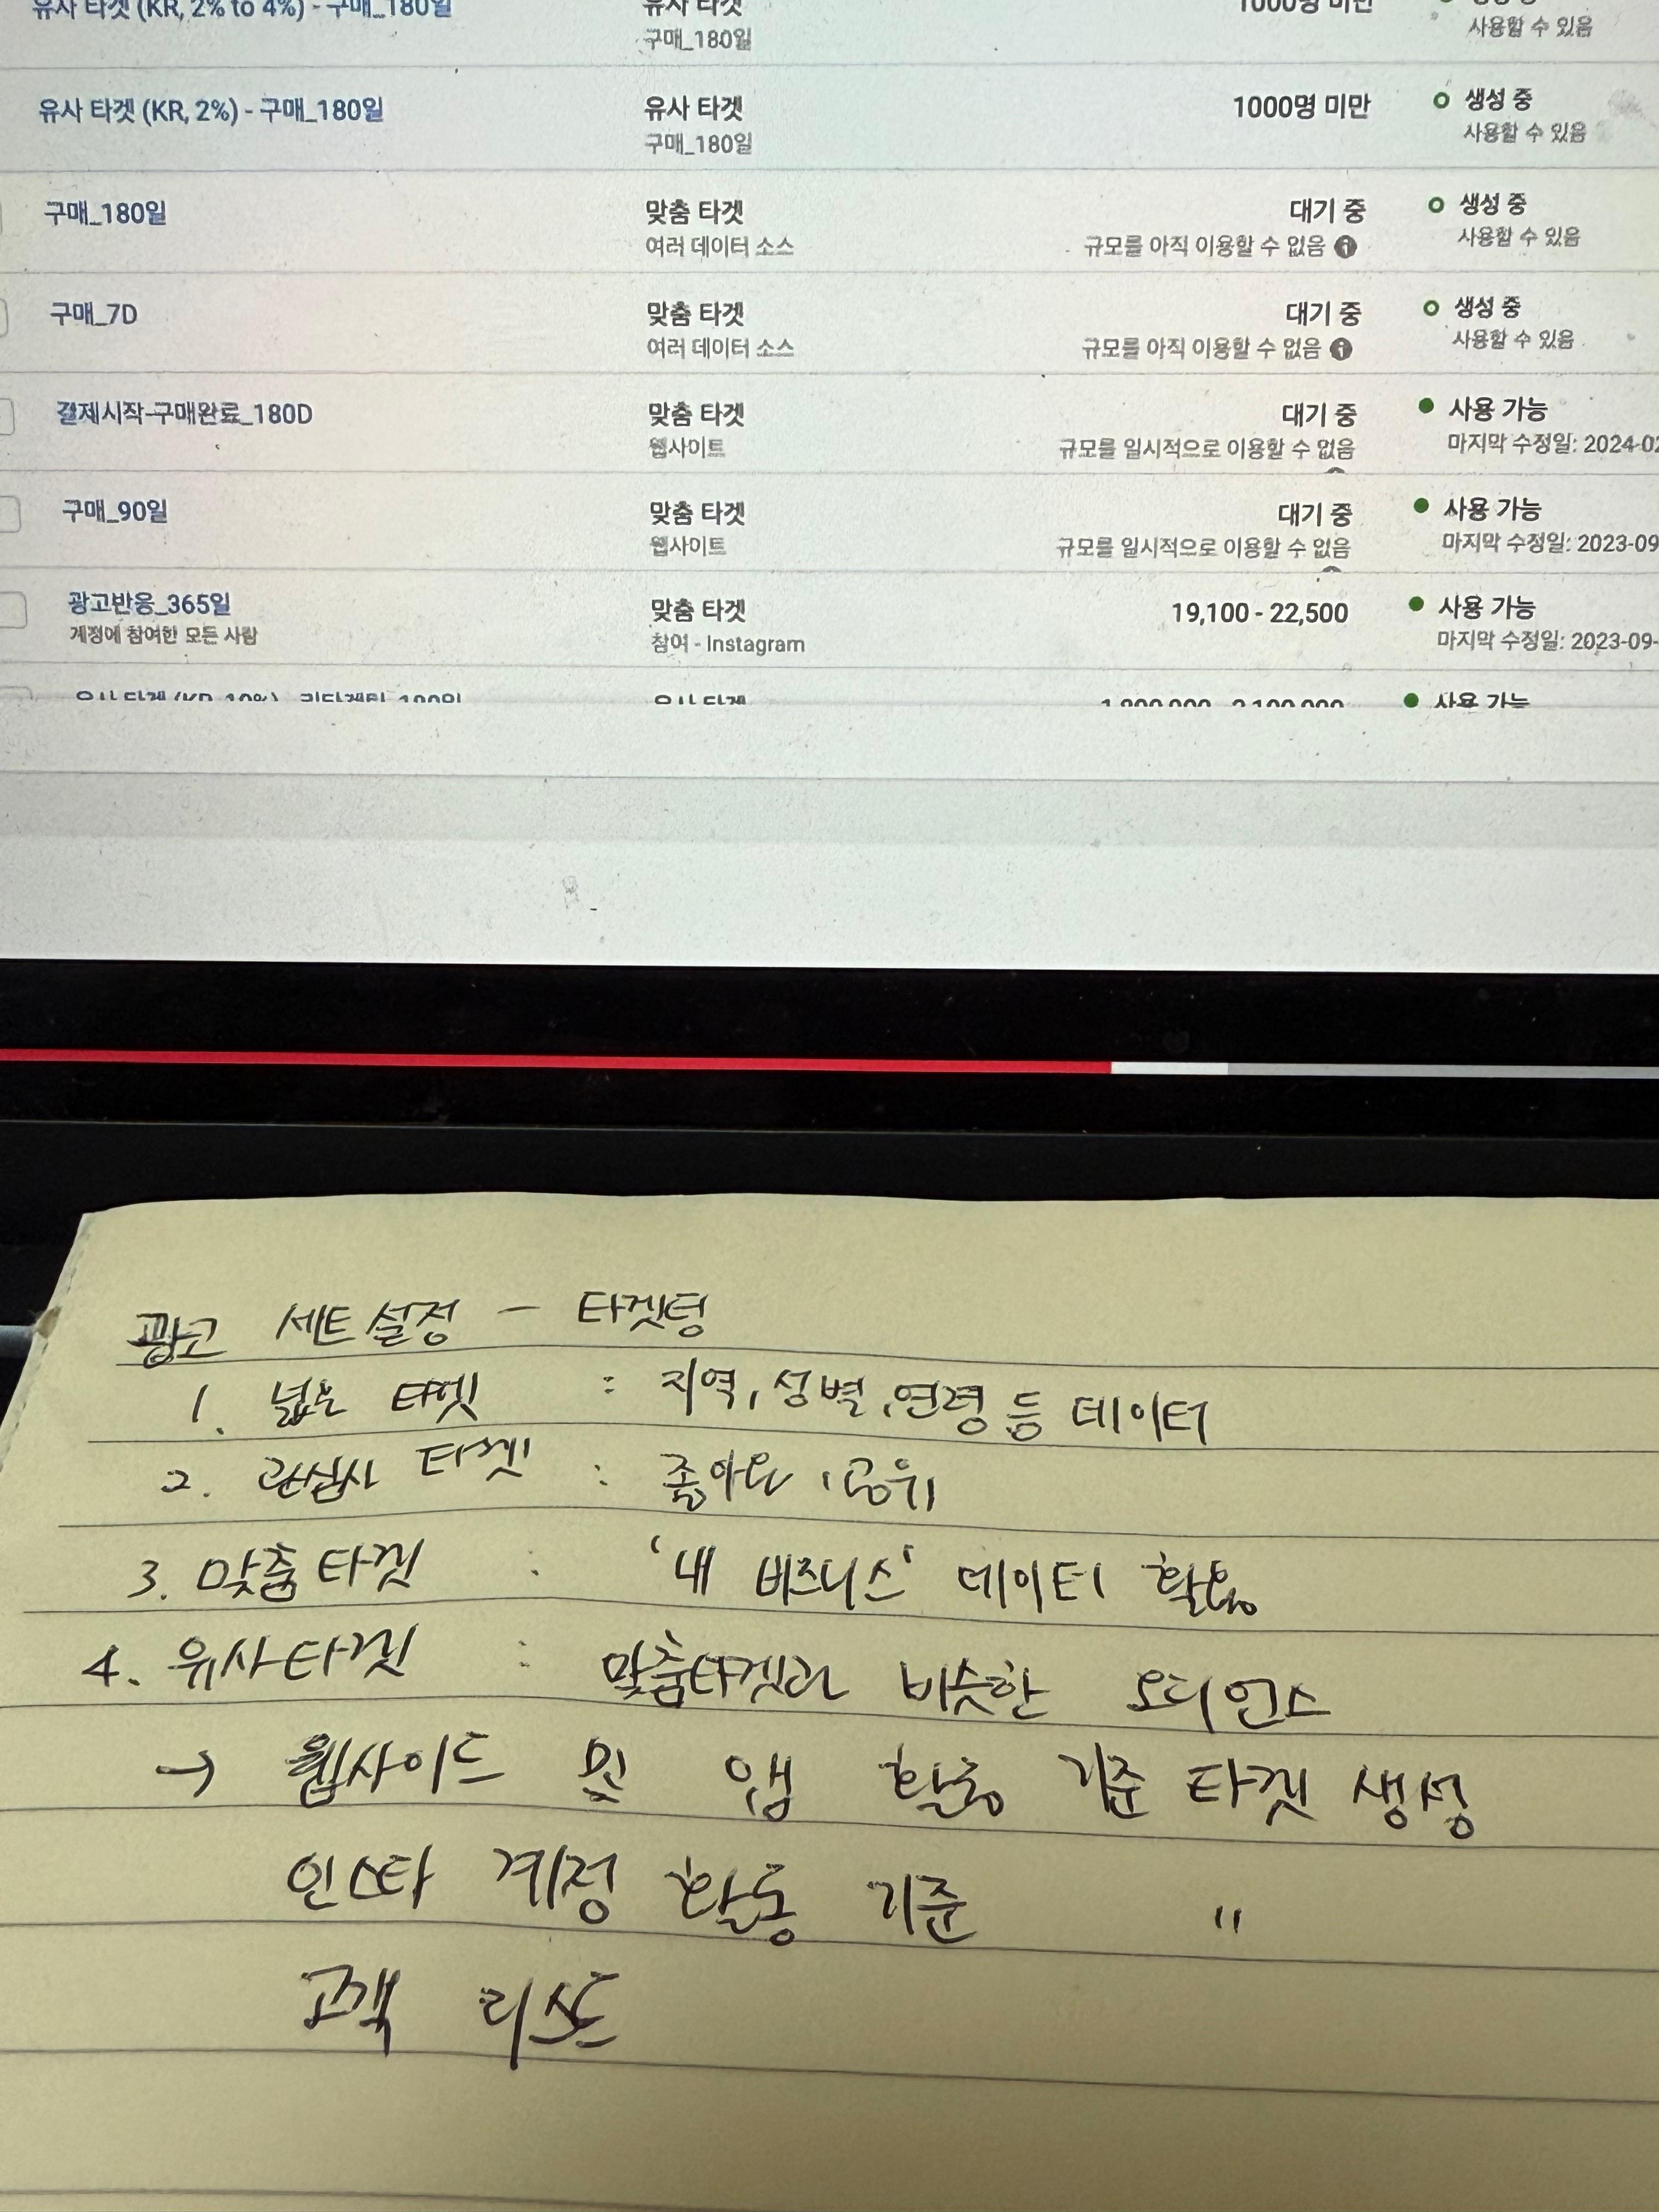 유사 타겟 (KR, 2% to 4%) - 구매_180일 유사 타겟 1000명 미만
구매_180일 사용할 수 있음
유사 타겟 (KR, 2%) - 구매_180일 유사 타겟 1000명 미만 생성 중
구매_180일 사용할 수 있음
구매_180일 맞춤 타겟 대기 중 생성 중
여러 데이터 소스 규모를 아직 이용할 수 없음 사용할 수 있음
구매_7D 맞춤 타겟 대기 중 생성 중
여러 데이터 소스 규모를 아직 이용할 수 없음 사용할 수 있음
결제시작-구매완료_180D 맞춤 타겟 대기 중 사용 가능
웹사이트 규모를 일시적으로 이용할 수 없음 마지막 수정일: 2024-02
구매_90일 맞춤 타겟 대기 중 사용 가능
웹사이트 규모를 일시적으로 이용할 수 없음 마지막 수정일: 2023-09
광고반응_365일 맞춤 타겟 19,100 - 22,500 사용 가능
계정에 참여한 모든 사람 참여 - Instagram 마지막 수정일: 2023-09-
유사 타겟 (KR, 10%) 유사 타겟 사용 가능
광고 세트설정 - 타겟팅
1. 넓은 타겟 : 지역, 성별, 연령 등 데이터
2. 관심사 타겟 : 좋아요, 공유
3. 맞춤타겟 : '내 비즈니스' 데이터 활용
4. 유사타겟 : 맞춤타겟과 비슷한 오디언스
→ 웹사이드 및 앱 활동 기준 타겟 생성
인스타 계정 활동 기준 "
고객 리스트